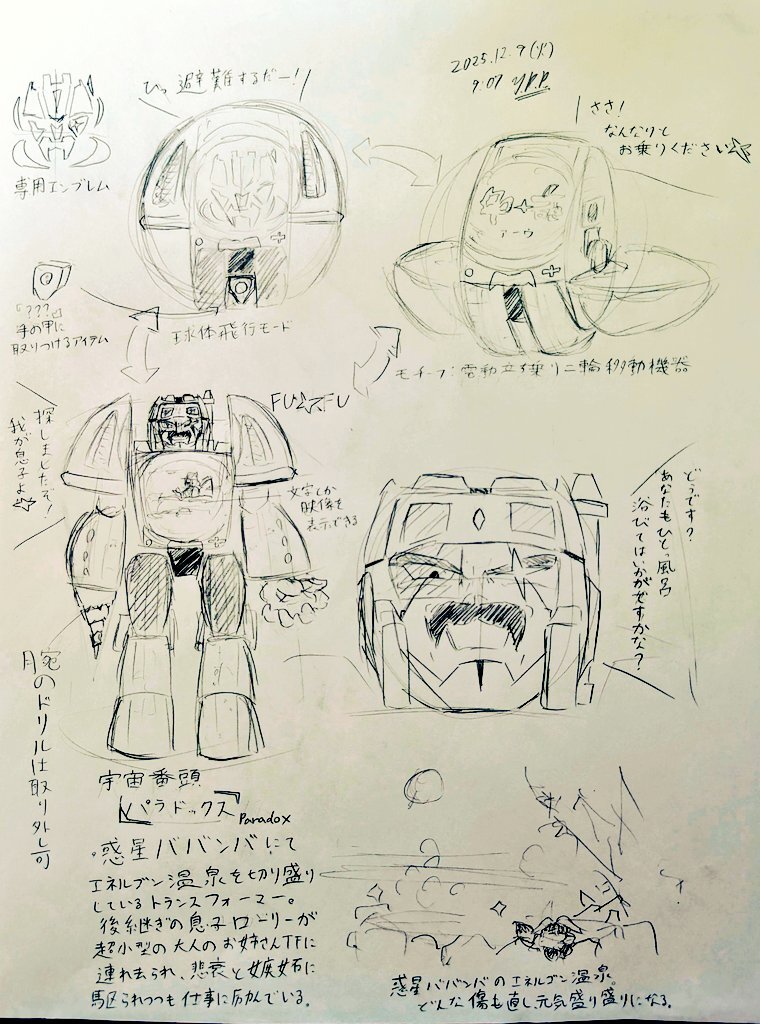 2025.12.9(火)
9:07 Y.P.P.
専用エンブレム
ひっ 避難するだー!
ささ!
なんなりと
お乗りください☆
アーウ
「???」
手の甲に
取りつけるアイテム
球体飛行モード
モチーフ:電動立ち乗り二輪移動機器
探しましたぞ!
我が息子よ☆
FU☆FU
文字とか
映像を
表示できる
どうです?
あなたもひとっ風呂
浴びてはいかがですかな?
腕のドリルは取り外し可
宇宙番頭
パラドックス
Paradox
惑星ババンバにて
エネルゴン温泉を切り盛り
しているトランスフォーマー。
後継ぎの息子ローリーが
超小型の大人のお姉さんTFに
連れ去られ、悲哀と嫉妬に
駆られつつも仕事に励んでいる。
惑星ババンバのエネルゴン温泉。
どんな傷も直し元気盛り盛りになる。